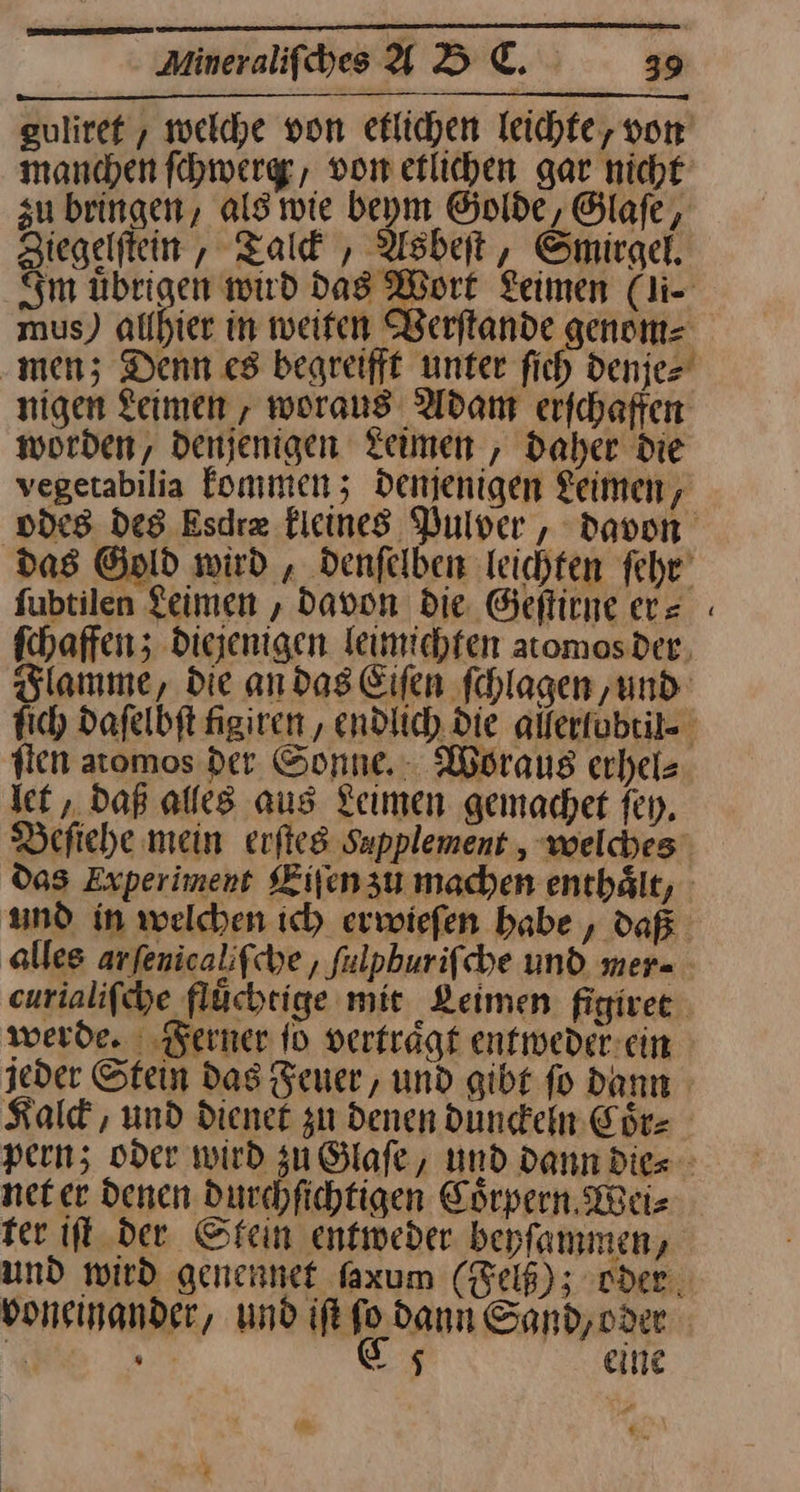 Mineraliſches A B C. 39
guliret, welche von etlichen leichte, von
manchen ſchwerer, von etlichen gar nicht
zu bringen, als wie beym Golde, Glaſe,
Ziegelſtein, Talck, Asbeſt, Smirgel.
Im uͤbrigen wird das Wort Leimen (li-
mus) allhier in weiten Verſtande genom⸗
men; Denn es begreifft unter ſich denje⸗
nigen Leimen, woraus Adam erſchaffen
worden, denjenigen Leimen, daher die
vegetabilia kommen; denjenigen Leimen,
odes des Esdræ kleines Pulver, davon
das Gold wird, denſelben leichten ſehr
ſubtilen Leimen, davon die Geſtirne er⸗
ſchaffen; diejenigen leimichten atomos der
Flamme, die an das Eiſen ſchlagen, und
ſich daſelbſt figiren, endlich die allerſubtil-
ſten atomos der Sonne. Woraus erhel⸗
let, daß alles aus Leimen gemachet ſey.
Beſiehe mein erſtes Supplement, welches
das Experiment Eiſen zu machen enthaͤlt,
und in welchen ich erwieſen habe, daß
alles arſenicaliſche, ſulphuriſche und mer-
curialiſche fluͤchtige mit Leimen figiret
werde. Ferner ſo vertraͤgt entweder ein
jeder Stein das Feuer, und gibt ſo dann
Kalck, und dienet zu denen dunckeln Coͤr⸗
pern; oder wird zu Glaſe, und dann die⸗
net er denen durchſichtigen Coͤrpern. Wei⸗
ter iſt der Stein entweder beyſammen,
und wird genennet ſaxum (Felß); oder
voneinander, und iſt ſo dann Sand, oder
C 5 eine